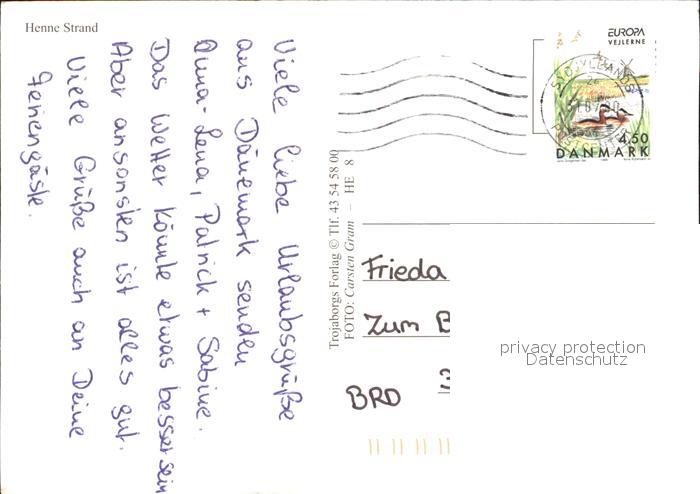 Henne Strand
Viele liebe Urlaubsgrüße
aus Dänemark senden
Anna-Lena, Patrick + Sabine.
Das Wetter könnte etwas besser sein
Aber ansonsten ist alles gut.
Viele Grüße auch an Deine
Feriengäste.
Trojaborgs Forlag © Tlf. 43 54 58 00
FOTO: Carsten Gram – HE 8
EUROPA
VEJLERNE
4.50
DANMARK
Frieda
Zum B
BRD
privacy protection
Datenschutz